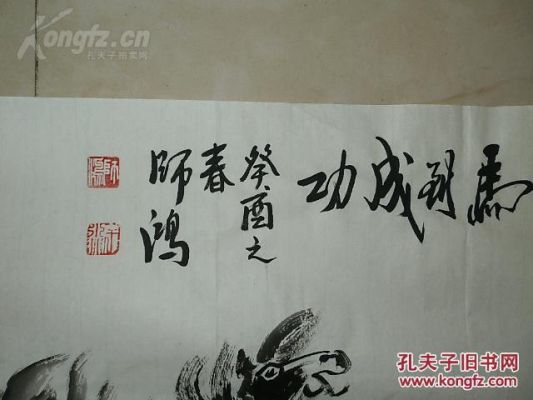 Kongfz.cn
孔夫子拍卖网
馬到成功
癸酉之
春
師鴻
孔夫子旧书网
www.kongfz.com